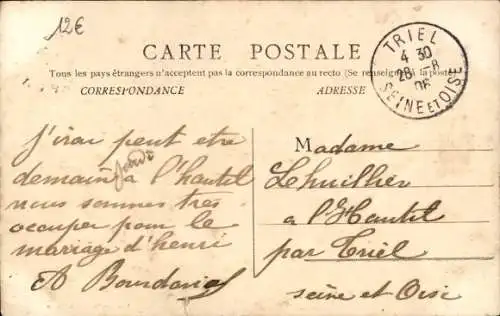 12€
CARTE POSTALE
Tous les pays étrangers n'acceptent pas la correspondance au recto (Se renseigner à la poste)
CORRESPONDANCE
ADRESSE
TRIEL
4 30
28 -8
06
SEINE ET OISE
j'irai peut etre
demain jeudi a l'hautil
nous sommes tres
occuper pour le
marriage d'henri
A Bourdania
Madame
Lehuillier
a l'Hautil
par Triel
seine et Oise